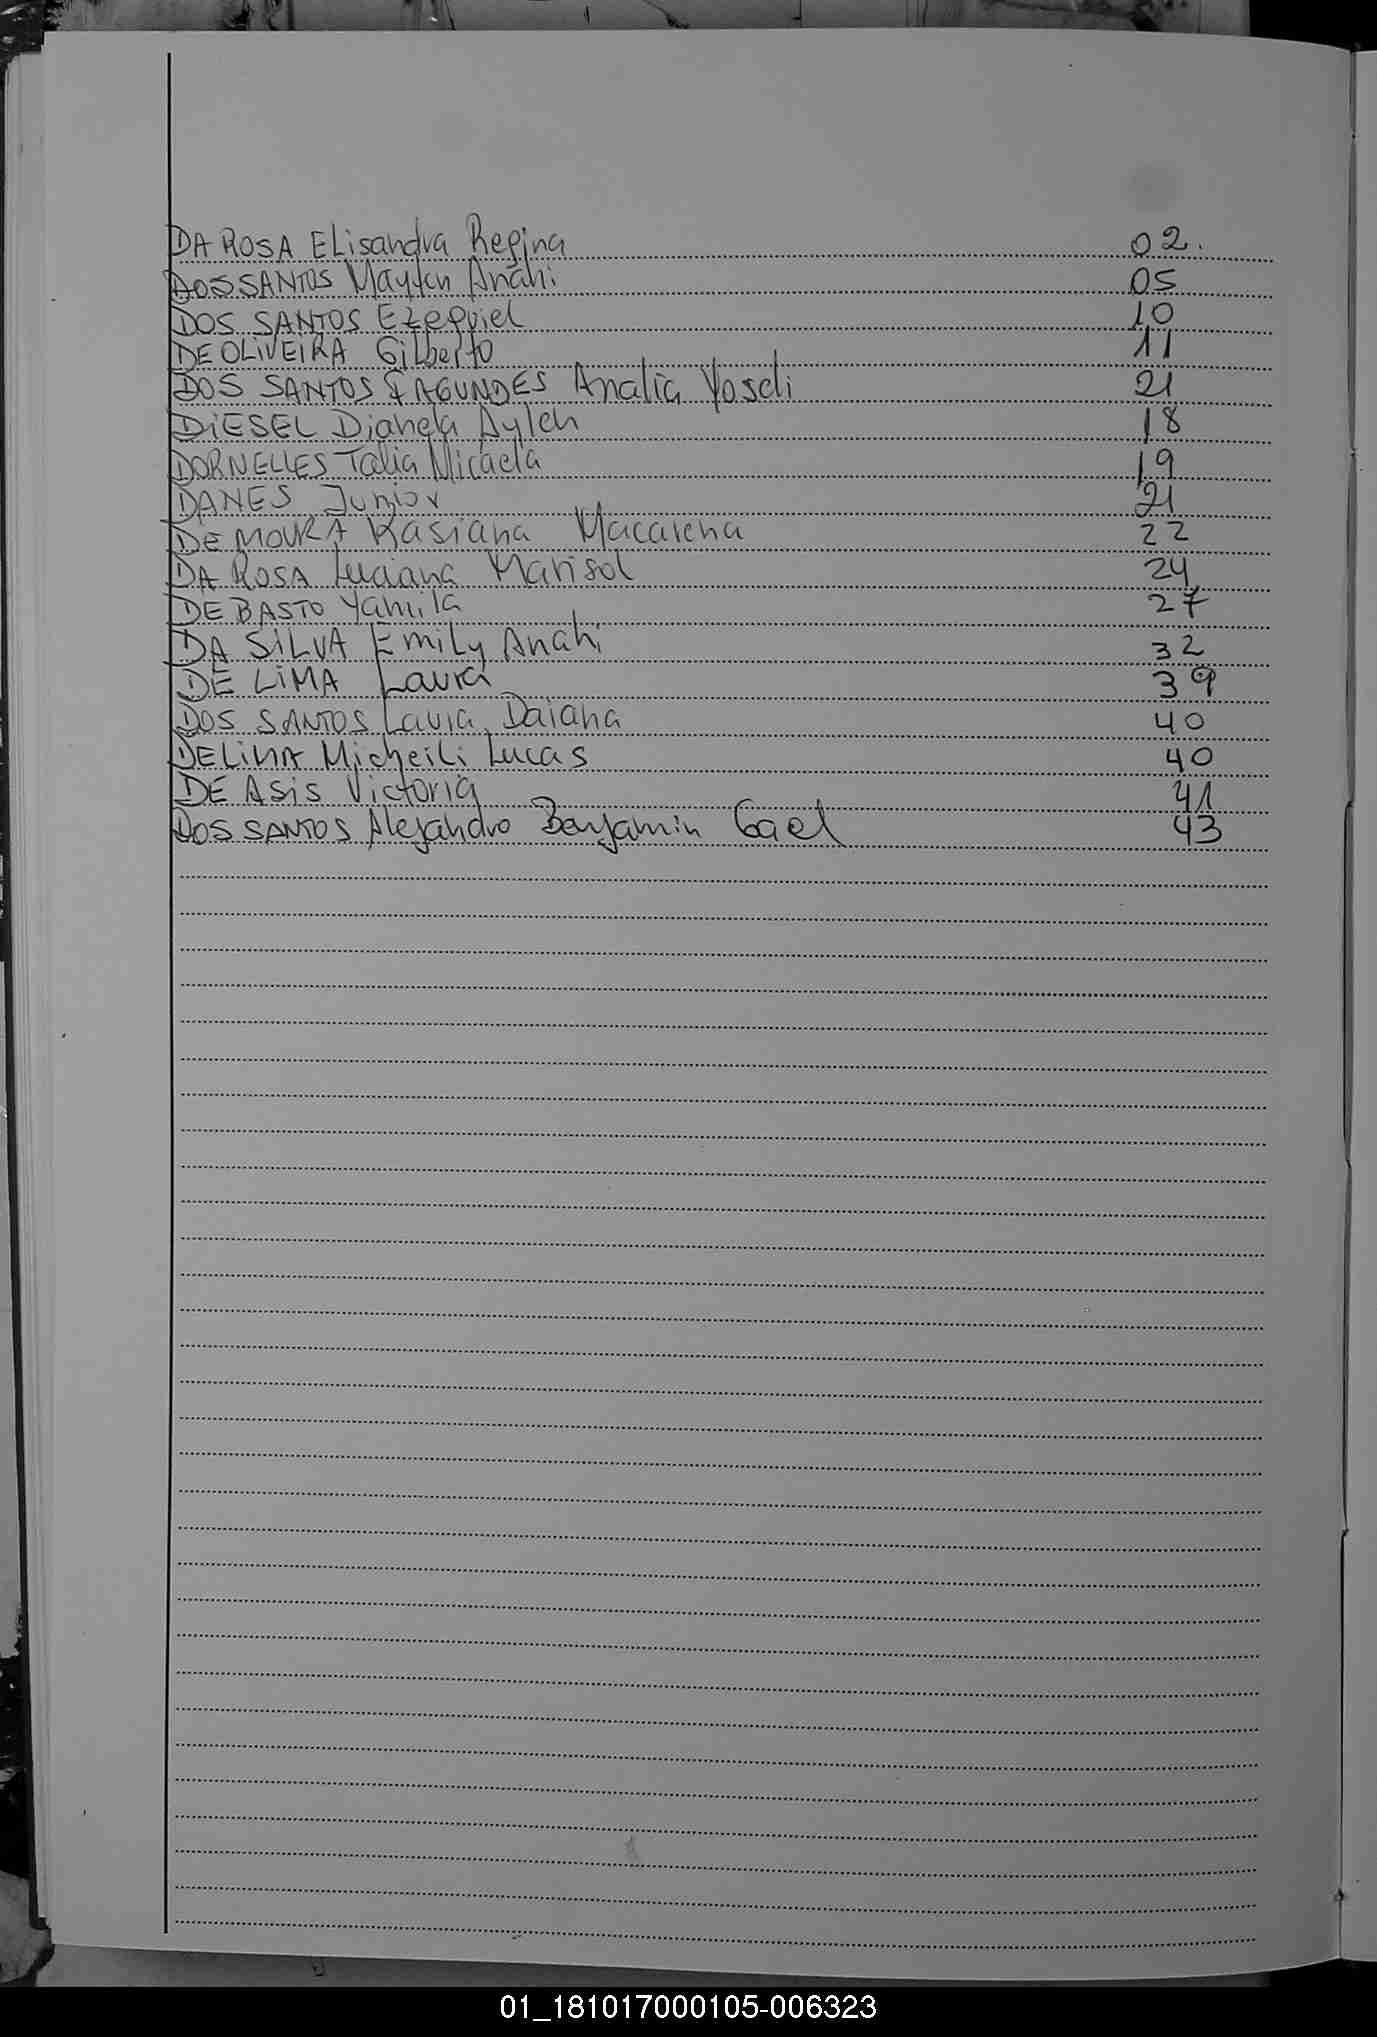 DA ROSA ELisandra Regina 02.
DOS SANTOS Maylen Anahi 05
DOS SANTOS Ezequiel 10
DE OLIVEIRA Gilberto 11
DOS SANTOS FAGUNDES Analia Yoseli 21
DIESEL Dianela Aylen 18
DORNELLES Talia Micaela 19
DANES Junior 21
DE MOURA Kasiana Macarena 22
DA ROSA Luciana Marisol 24
DE BASTO Yamila 27
DA SILVA Emily Anahi 32
DE LIMA Laura 39
DOS SANTOS Laura Daiana 40
DE LIMA Micheili Lucas 40
DE ASIS Victoria 41
DOS SANTOS Alejandro Benjamin Gael 43
01_181017000105-006323